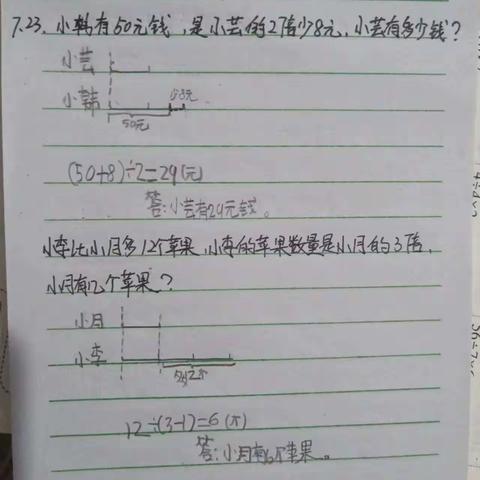 7.23. 小韩有50元钱,是小芸的2倍少8元,小芸有多少钱?
小芸
小韩
少8元
50元
(50+8)÷2=29(元)
答:小芸有29元钱。
小李比小月多12个苹果,小李的苹果数量是小月的3倍,
小月有几个苹果?
小月
小李
多12个
12÷(3-1)=6(个)
答:小月有6个苹果。